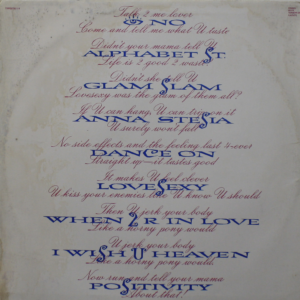 Talk 2 me lover
EYE NO
Come and tell me what U taste
Didn't your mama tell U
ALPHABET ST.
Life is 2 good 2 waste
Didn't she tell U
GLAM SLAM
Lovesexy was the glam of them all?
If U can hang, U can try on it
ANNA STESIA
U surely won't fall
No side effects and the feeling last 4-ever
DANCE ON
Straight up—it tastes good
It makes U feel clever
LOVESEXY
U kiss your enemies like U know U should
Then U jerk your body
WHEN 2 R IN LOVE
Like a horny pony would
U jerk your body
I WISH U HEAVEN
Like a horny pony would
Now run and tell your mama
POSITIVITY
About that!